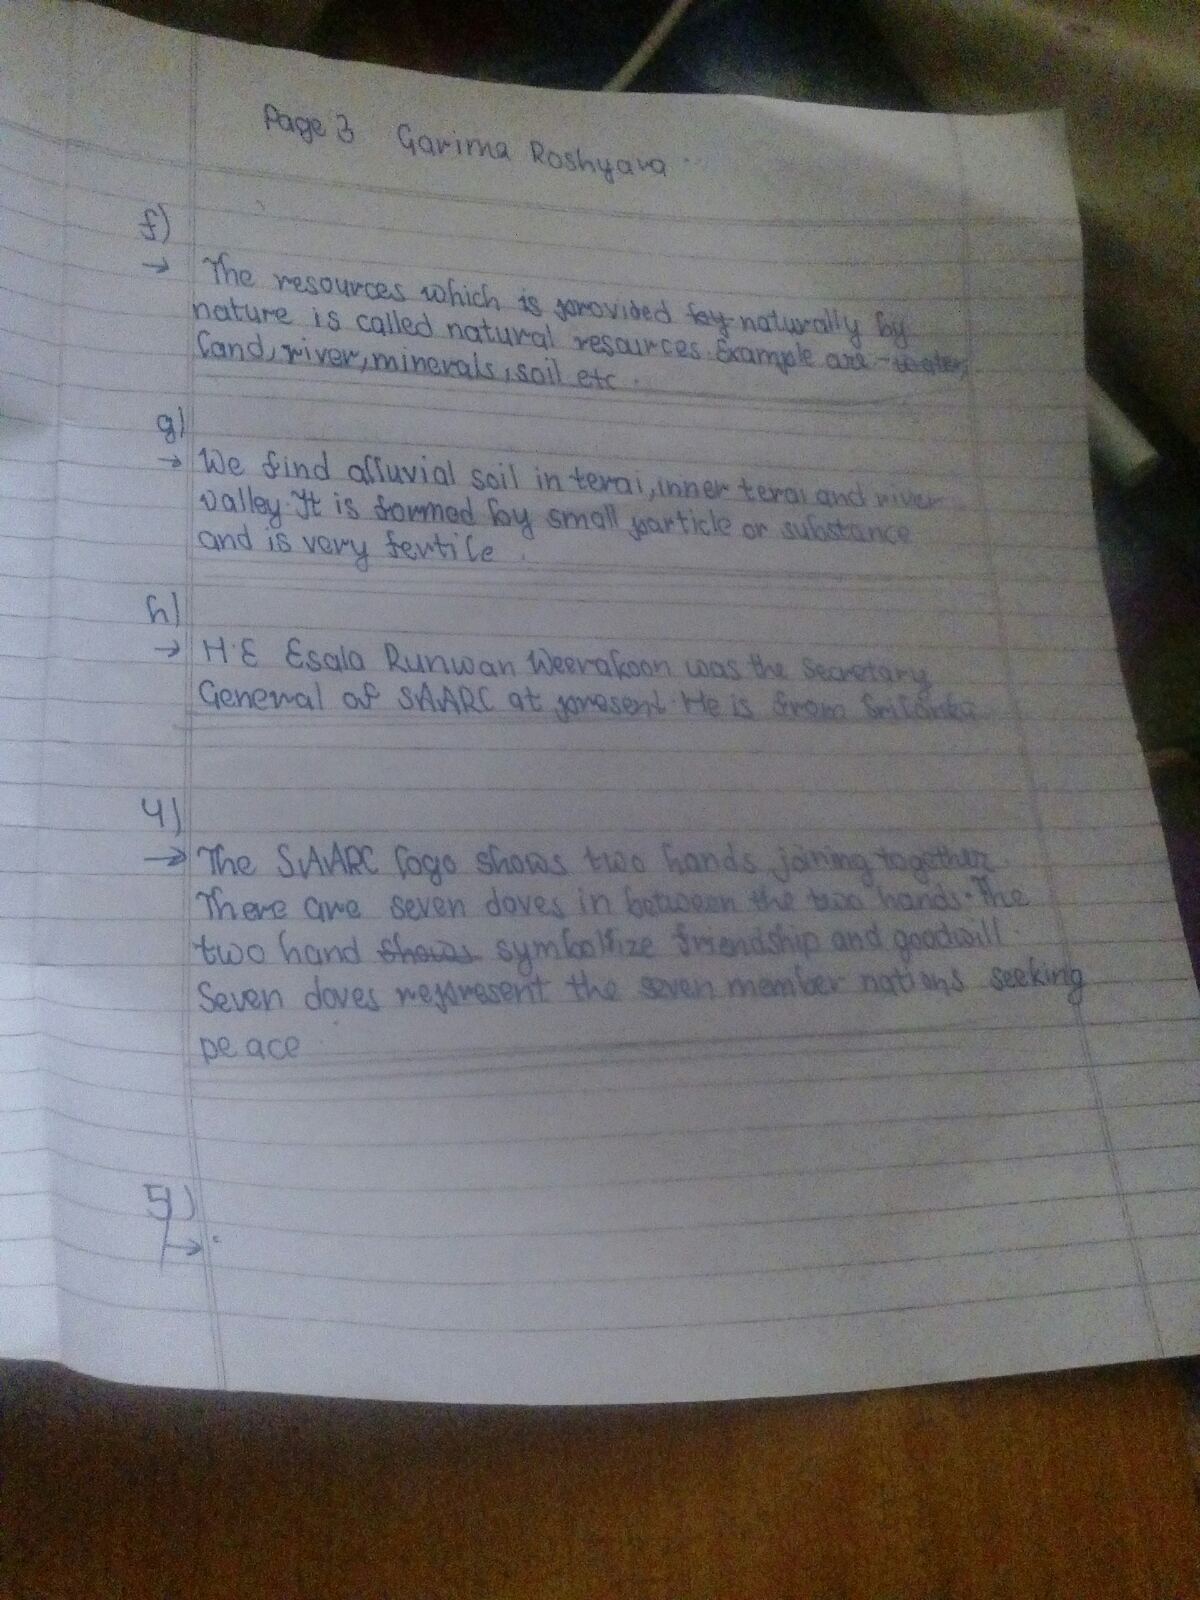 Page 3 Garima Roshyara
f)
→ The resources which is provided by naturally by
nature is called natural resources. Example are - water,
land, river, minerals, soil etc.
g)
→ We find alluvial soil in terai, inner terai and river
valley. It is formed by small particle or substance
and is very fertile.
h)
→ H.E Esala Runwan Weerakoon was the Secretary
General of SAARC at present. He is from Srilanka.
4)
→ The SAARC logo shows two hands joining together.
There are seven doves in between the two hands. The
two hand shows symbolize friendship and goodwill.
Seven doves represent the seven member nations seeking
peace
5)
→